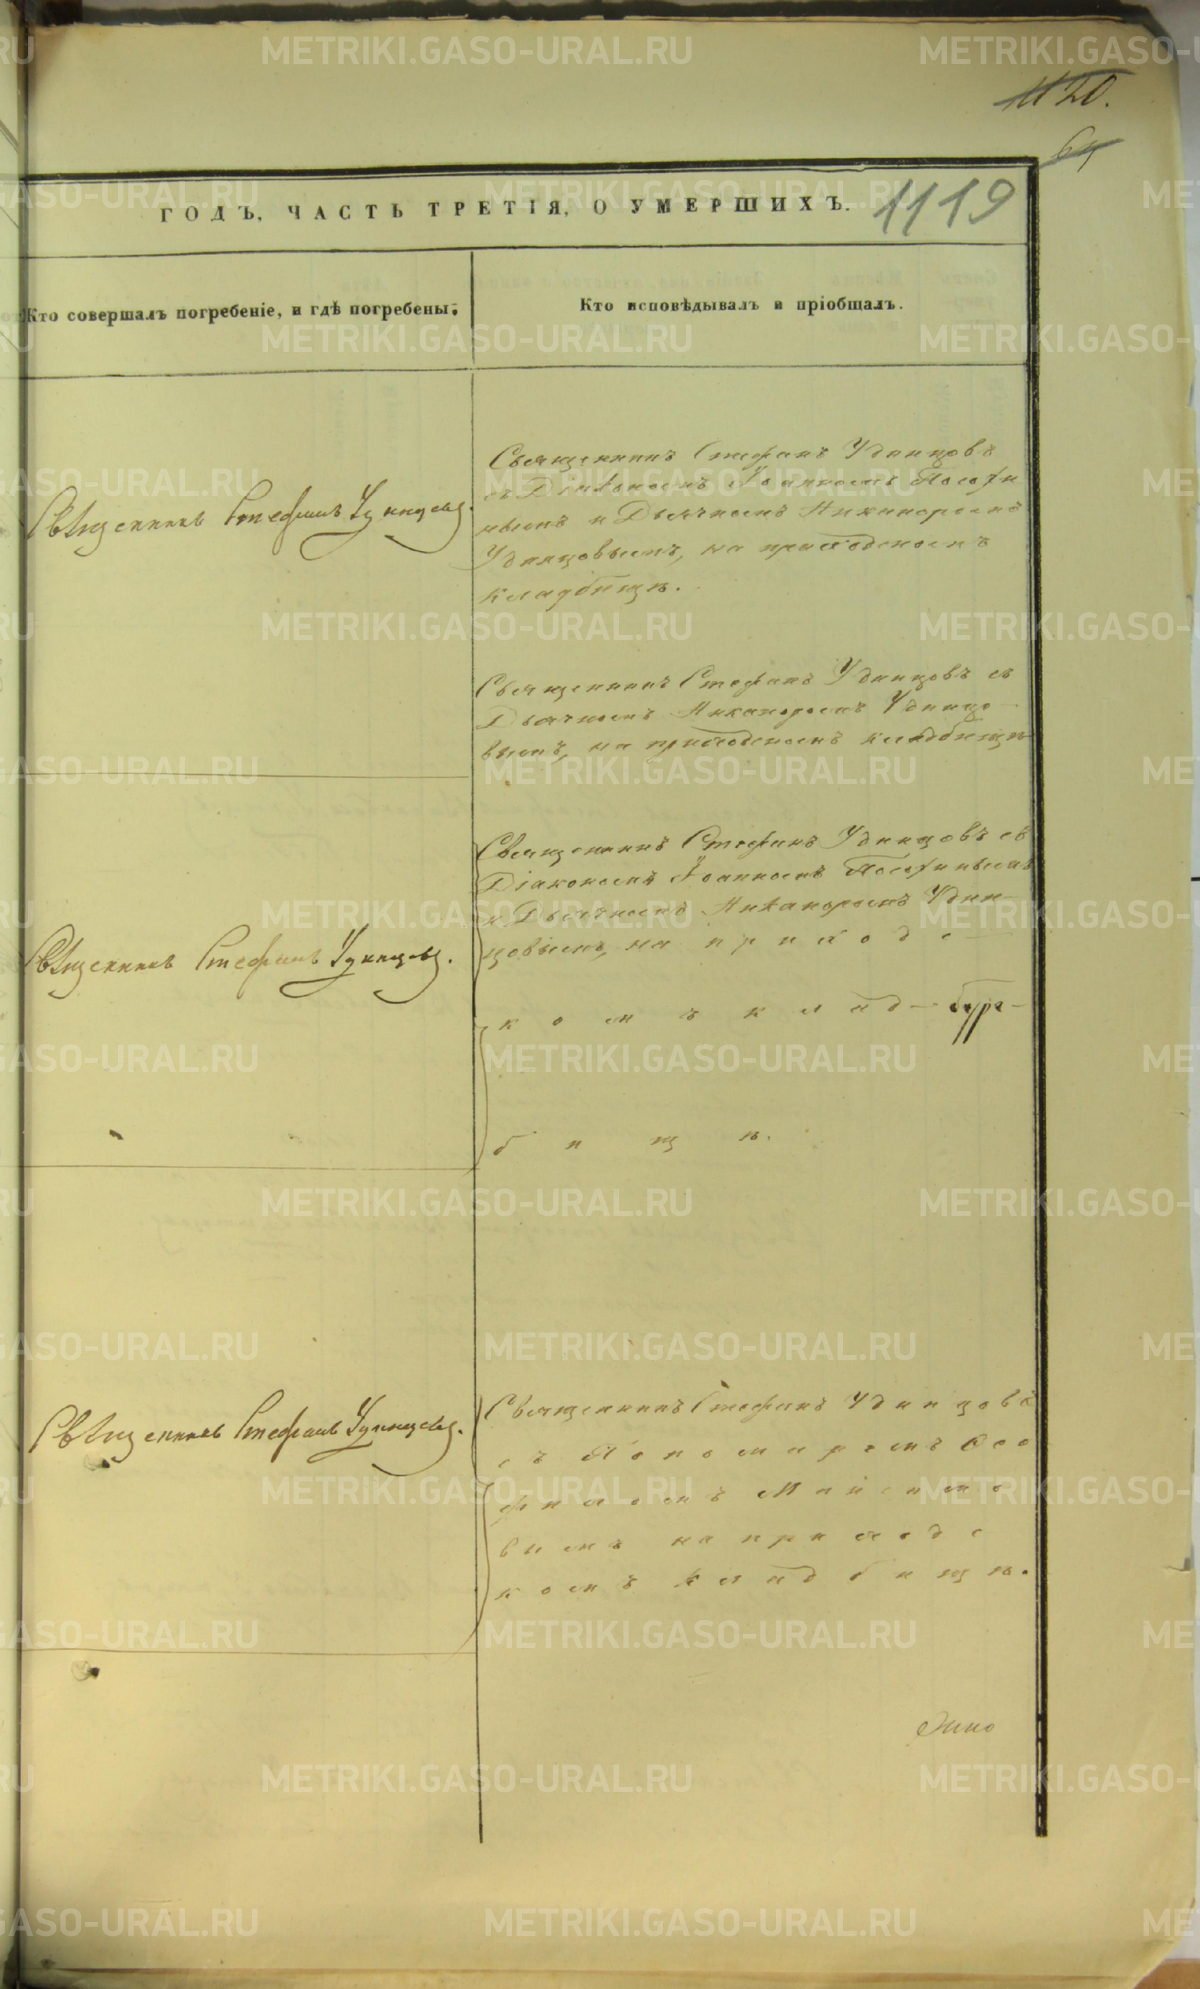 1120.
64
ГОДЪ, ЧАСТЬ ТРЕТІЯ, О УМЕРШИХЪ.
1119
Кто совершалъ погребеніе, и гдѣ погребены.
Кто исповѣдывалъ и пріобщалъ.
Священникъ Стефанъ Удинцовъ.
Священникъ Стефанъ Удинцовъ
съ Діакономъ Іоанномъ
и Дьячкомъ Никаноромъ
Удинцовымъ, на приходскомъ
кладбищѣ.
Священникъ Стефанъ Удинцовъ съ
Дьячкомъ Никаноромъ Удинцо-
вымъ, на приходскомъ кладбищѣ
Священникъ Стефанъ Удинцовъ съ
Діакономъ Іоанномъ
и Дьячкомъ Никаноромъ Удин-
цовымъ, на приходс-
Священникъ Стефанъ Удинцовъ.
комъ клад-
бищѣ.
Священникъ Стефанъ Удинцовъ
Священникъ Стефанъ Удинцовъ.
съ Пономаремъ Ѳео
филомъ
вымъ на приходс
комъ кладбищѣ.
METRIKI.GASO-URAL.RU